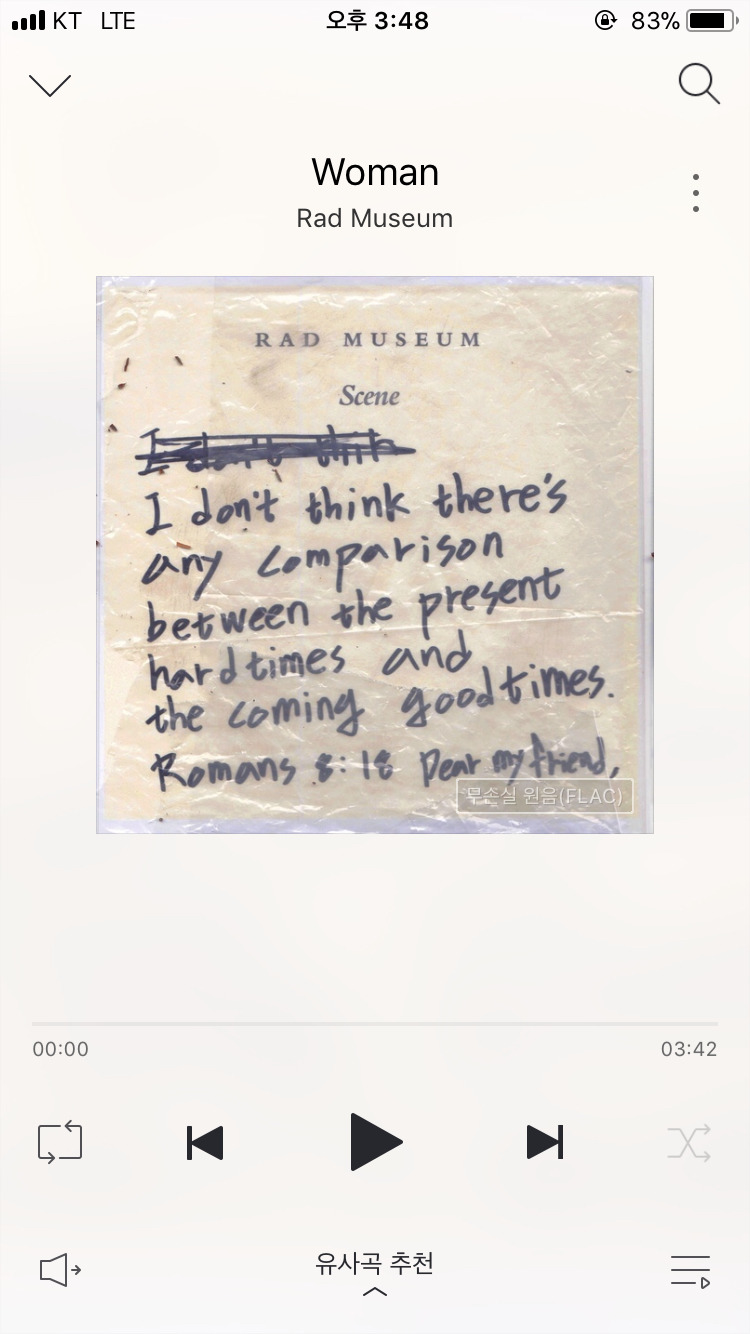 KT LTE 오후 3:48 83%
Woman
Rad Museum
RAD MUSEUM
Scene
I don't think
I don't think there's
any comparison
between the present
hard times and
the coming good times.
Romans 8:18 Dear my friend,
무손실 원음(FLAC)
00:00 03:42
유사곡 추천